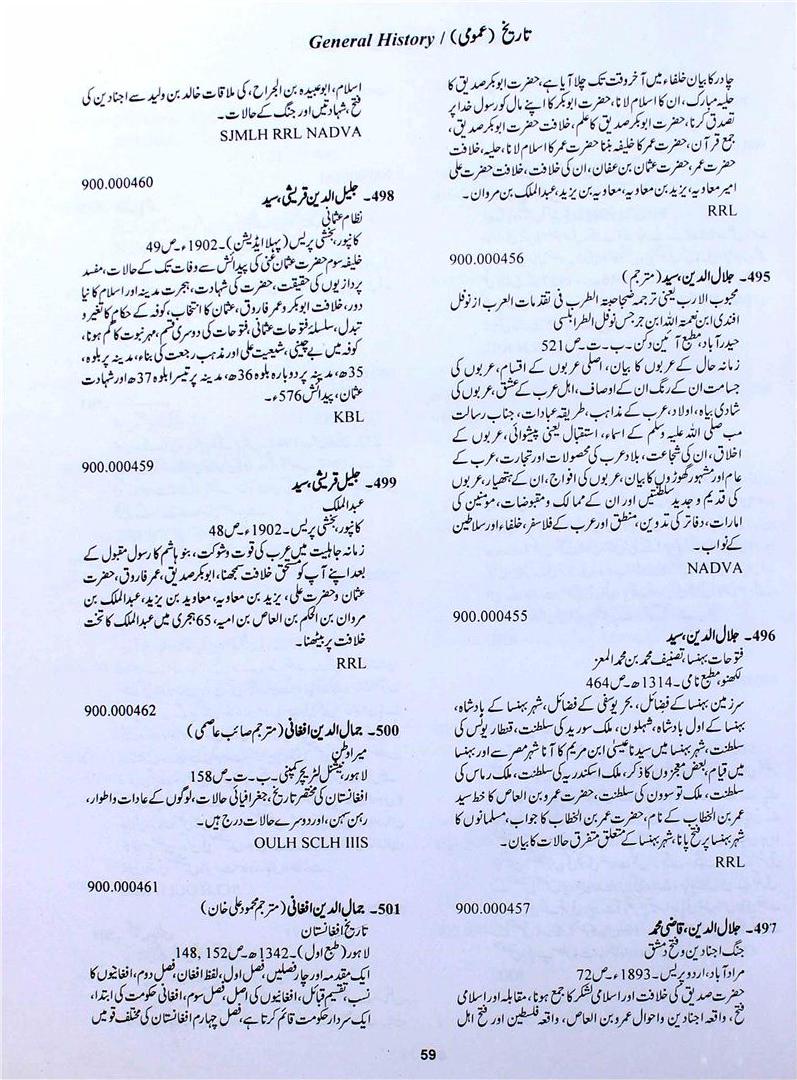 General History / تاریخ (عمومی)
چادر کا بیان خلفاء میں آخر وقت تک چلا آیا ہے، حضرت ابوبکر صدیق کا
حلیہ مبارک، ان کا اسلام لانا، حضرت ابوبکر کا اپنے مال کو رسول خدا پر
تصدق کرنا، حضرت ابوبکر صدیق کا علم، خلافت حضرت ابوبکر صدیق،
جمع قرآن، حضرت عمر کا خلیفہ بننا حضرت عمر کا اسلام لانا، حلیہ، خلافت
حضرت عمر، حضرت عثمان بن عفان، ان کی خلافت، خلافت حضرت علی
امیر معاویہ، یزید بن معاویہ، معاویہ بن یزید، عبدالملک بن مروان۔
RRL
900.000456
495۔ جلال الدین، سید (مترجم)
محبوب الارب یعنی ترجمہ صناجۃ الطرب فی تقدمات العرب از نوفل
افندی ابن نعمۃ اللہ ابن جرجس نوفل الطرابلسی
حیدرآباد، مطبع آئین دکن۔ ب۔ت۔ ص521
زمانہ حال کے عربوں کا بیان، اصلی عربوں کے اقسام، عربوں کی
جسامت ان کے رنگ ان کے اوصاف، اہل عرب کے عشق، عربوں کی
شادی بیاہ، اولاد، عرب کے مذاہب، طریقہ عبادات، جناب رسالت
مب صلی اللہ علیہ وسلم کے اسماء، استقبال یعنی پیشوائی، عربوں کے
اخلاق، ان کی شجاعت، بلاد عرب کی محصولات اور تجارت، عرب کے
عام اور مشہور گھوڑوں کا بیان، عربوں کی افواج، ان کے ہتھیار، عربوں
کی قدیم و جدید سلطنتیں اور ان کے ممالک و مقبوضات، مومنین کی
امارات، دفاتر کی تدوین، منطق اور عرب کے فلاسفر، خلفاء اور سلاطین
کے نواب۔
NADVA
900.000455
496۔ جلال الدین، سید
فتوحات بہنسا، تصنیف محمد بن محمد المعز
لکھنو، مطبع نامی۔ 1314ھ۔ ص464
سرزمین بہنسا کے فضائل، بحر یوسفی کے فضائل، شہر بہنسا کے بادشاہ،
بہنسا کے اول بادشاہ، شہلون، ملک سورید کی سلطنت، قنطاریوس کی
سلطنت، شہر بہنسا میں سیدنا عیسیٰ ابن مریم کا آنا شہر مصر سے اور بہنسا
میں قیام، بعض معجزوں کا ذکر، ملک اسکندریہ کی سلطنت، ملک رماس کی
سلطنت، ملک توسدون کی سلطنت، حضرت عمرو بن العاص کا خط سید
عمر بن الخطاب کے نام، حضرت عمر بن الخطاب کا جواب، مسلمانوں کا
شہر بہنسا پر فتح پانا، شہر بہنسا کے متعلق متفرق حالات کا بیان۔
RRL
900.000457
497۔ جلال الدین، قاضی محمد
جنگ اجنادین و فتح دمشق
مرادآباد، اردو پریس۔ 1893ء۔ ص72
حضرت صدیق کی خلافت اور اسلامی لشکر کا جمع ہونا، مقابلہ اور اسلامی
فتح، واقعہ اجنادین و احوال عمرو بن العاص، واقعہ فلسطین اور فتح اہل
اسلام، ابوعبیدہ بن الجراح، کی ملاقات خالد بن ولید سے اجنادین کی
فتح، شہادتیں اور جنگ کے حالات۔
SJMLH RRL NADVA
900.000460
498۔ جلیل الدین قریشی، سید
نظام عثمانی
کانپور، بخشی پریس (پہلا ایڈیشن)۔ 1902ء۔ ص49
خلیفہ سوم حضرت عثمان غنی کی پیدائش سے وفات تک کے حالات، مفسد
پردازیوں کی حقیقت، حضرت کی شہادت، ہجرت مدینہ اور اسلام کا نیا
دور، خلافت ابوبکر و عمر فاروق، عثمان کا انتخاب، کوفہ کے حکام کا تغیر و
تبدل، سلسلۂ فتوحات عثمانی، فتوحات کی دوسری قسم، مہر نبوت کا گم ہونا،
کوفہ میں بے چینی، شیعیت علی اور مذہب رجعت کی بناء، مدینہ پر بلوہ،
35ھ، مدینہ پر دوبارہ بلوہ 36ھ، مدینہ پر تیسرا بلوہ 37ھ اور شہادت
عثمان، پیدائش 576ء۔
KBL
900.000459
499۔ جلیل قریشی، سید
عبدالملک
کانپور، بخشی پریس۔ 1902ء۔ ص48
زمانہ جاہلیت میں عرب کی قوت و شوکت، بنو ہاشم کا رسول مقبول کے
بعد اپنے آپ کو مستحق خلافت سمجھنا، ابوبکر صدیق، عمر فاروق، حضرت
عثمان و حضرت علی، یزید بن معاویہ، معاویہ بن یزید، عبدالملک بن
مروان بن الحکم بن العاص بن امیہ، 65 ہجری میں عبدالملک کا تخت
خلافت پر بیٹھنا۔
RRL
900.000462
500۔ جمال الدین افغانی (مترجم صائب عاصمی)
میرا وطن
لاہور، نیشنل لٹریچر کمپنی۔ ب۔ت۔ ص158
افغانستان کی مختصر تاریخ، جغرافیائی حالات، لوگوں کے عادات و اطوار،
رہن سہن، اور دوسرے حالات درج ہیں۔
OULH SCLH IIIS
900.000461
501۔ جمال الدین افغانی (مترجم محمود علی خان)
تاریخ افغانستان
لاہور (طبع اول)۔ 1342ھ۔ ص152, 148
ایک مقدمہ اور چار فصلیں، فصل اول، لفظ افغان، فصل دوم، افغانیوں کا
نسب، تقسیم قبائل، افغانیوں کی اصل، فصل سوم، افغانی حکومت کی ابتدا،
ایک سردار حکومت قائم کرتا ہے، فصل چہارم افغانستان کی مختلف قومیں
59